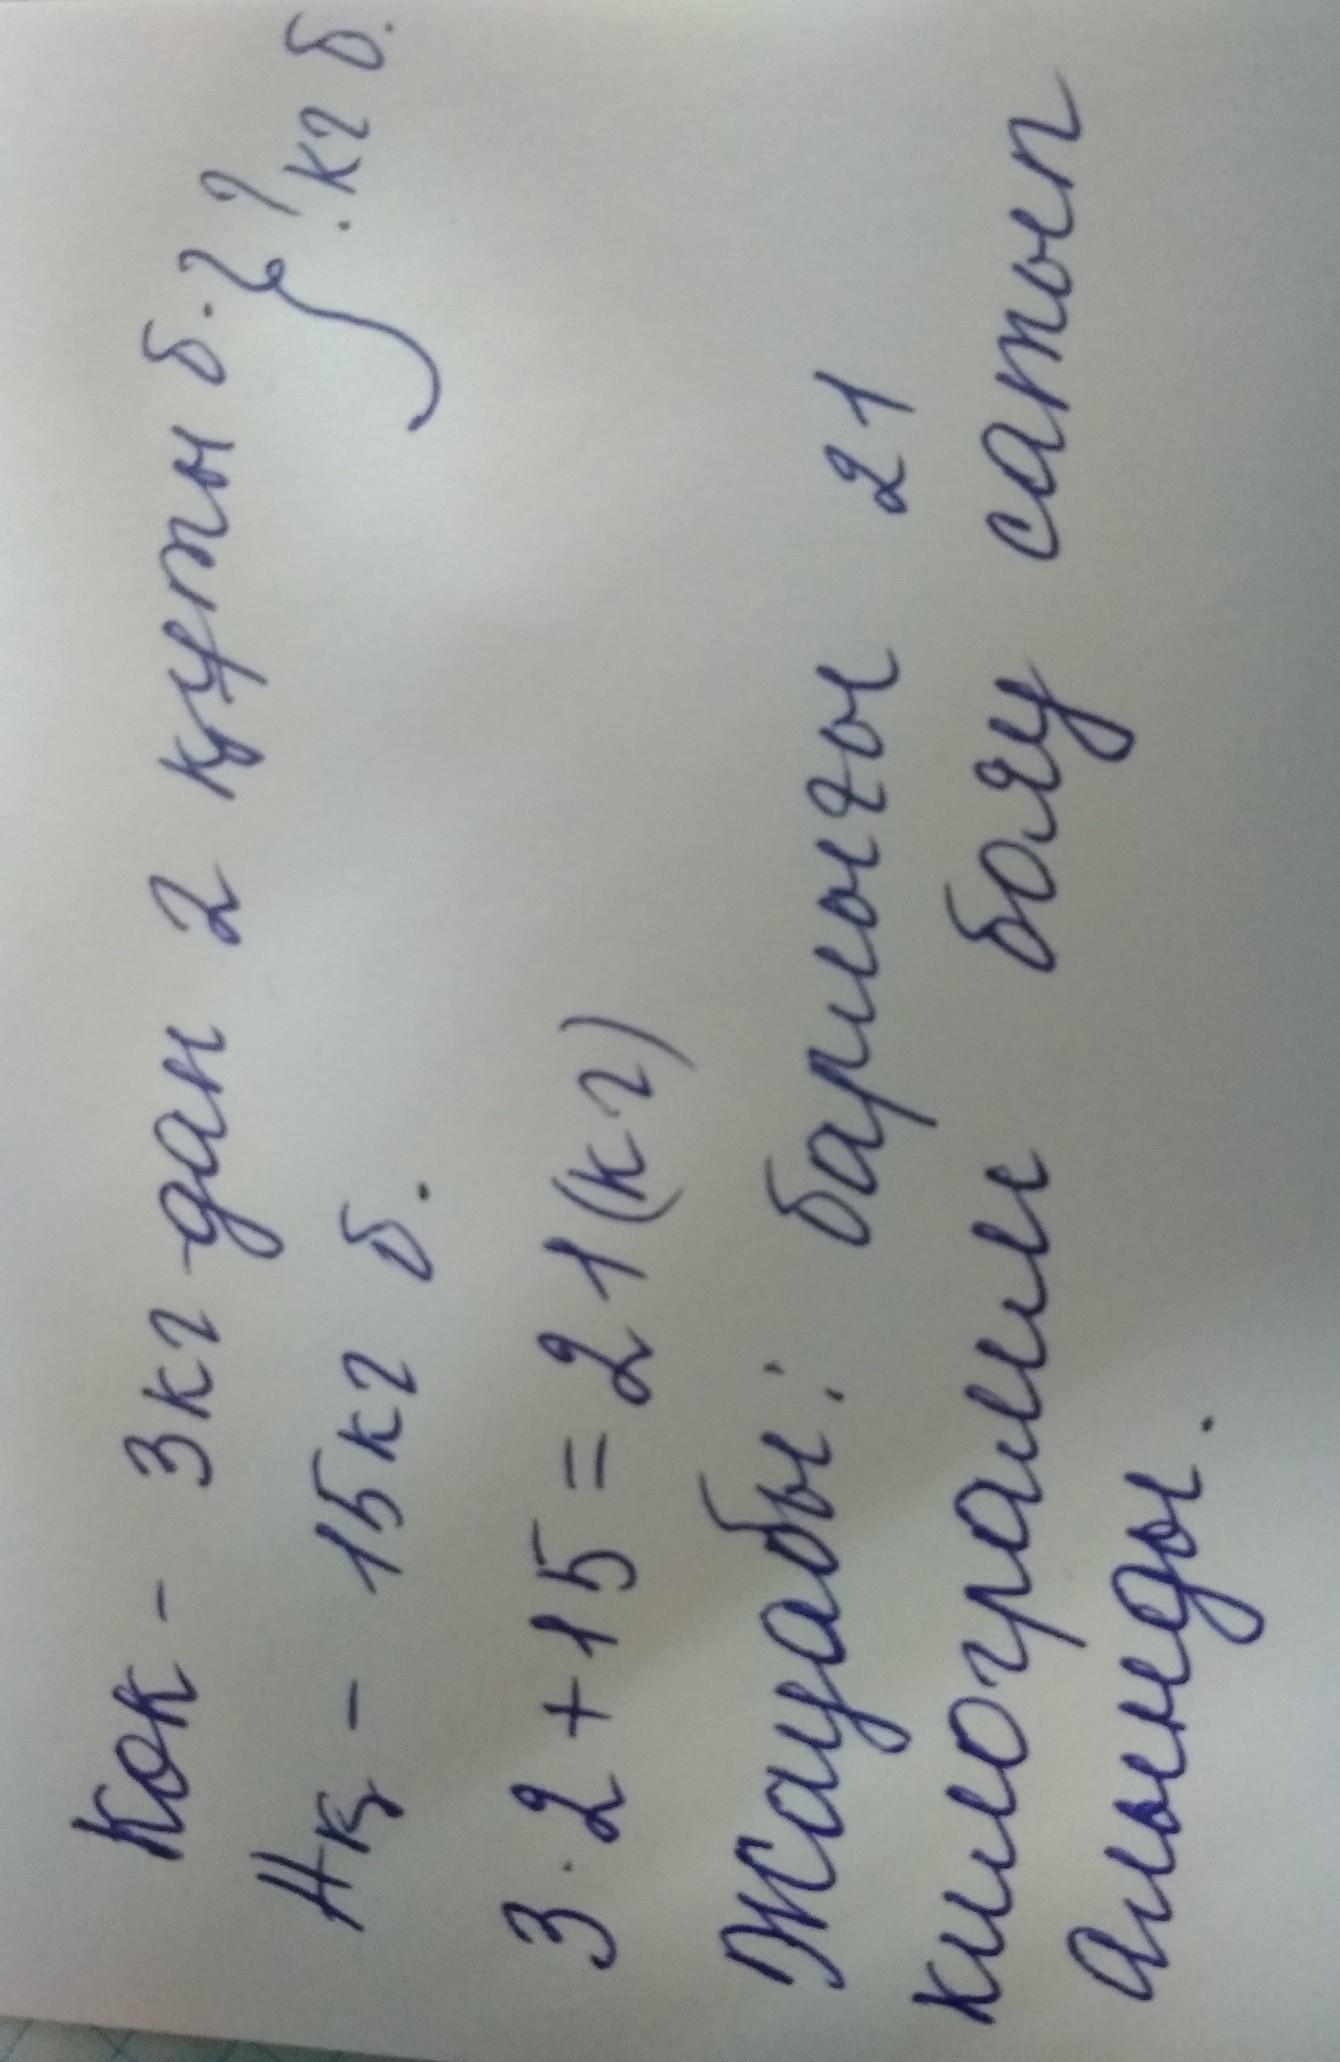 Көк - 3кг дан 2 құты б. } ? кг б.
Ақ - 15кг б.
3·2+15=21(кг)
Жауабы: барлығы 21
килограмм бояу сатып
алынды.